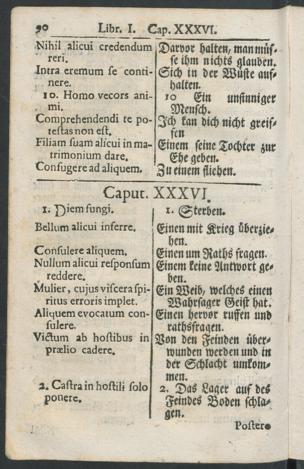 90 Libr. I. Cap. XXXVI.
Nihil alicui credendum
reri.
Intra eremum se conti-
nere.
10. Homo vecors ani-
mi.
Comprehendendi te po-
testas non est.
Filiam suam alicui in ma-
trimonium dare.
Confugere ad aliquem.
Darvor halten, man müs-
se ihm nichts glauben.
Sich in der Wüste auf-
halten.
10 Ein unsinniger
Mensch.
Ich kan dich nicht greif-
fen
Einem seine Tochter zur
Ehe geben.
Zu einem fliehen.
Caput. XXXVI.
1. Diem fungi.
Bellum alicui inferre.
Consulere aliquem.
Nullum alicui responsum
reddere.
Mulier, cujus viscera spi-
ritus erroris implet.
Aliquem evocatum con-
sulere.
Victum ab hostibus in
prælio cadere.
2. Castra in hostili solo
ponere.
1. Sterben.
Einen mit Krieg überzie-
hen.
Einen um Raths fragen.
Einem keine Antwort ge-
ben.
Ein Weib, welches einen
Wahrsager Geist hat.
Einen hervor ruffen und
rathsfragen.
Von den Feinden über-
wunden werden und in
der Schlacht umkom-
men.
2. Das Lager auf des
Feindes Boden schla-
gen.
Postero